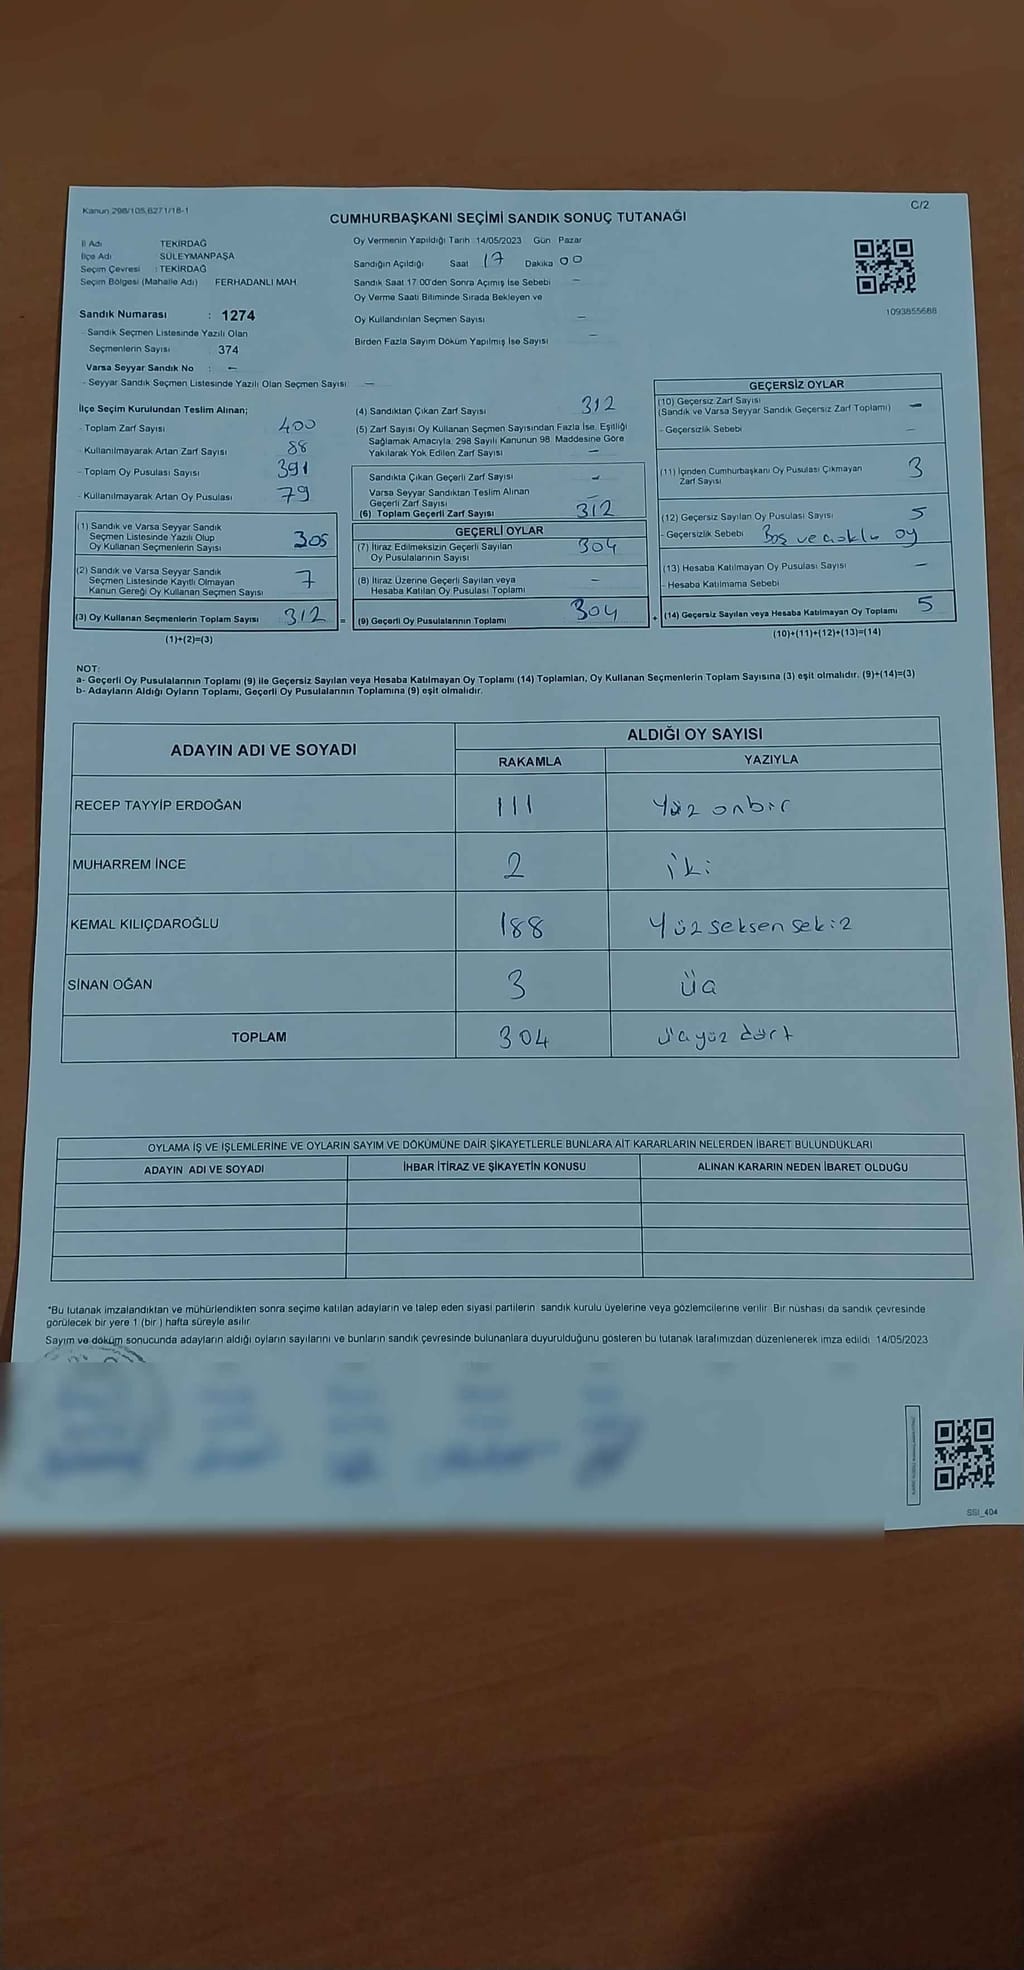 Kanun 298/105,6271/18-1
C/2
CUMHURBAŞKANI SEÇİMİ SANDIK SONUÇ TUTANAĞI
İl Adı TEKİRDAĞ
İlçe Adı SÜLEYMANPAŞA
Seçim Çevresi : TEKİRDAĞ
Seçim Bölgesi (Mahalle Adı) FERHADANLI MAH.
Sandık Numarası : 1274
- Sandık Seçmen Listesinde Yazılı Olan
Seçmenlerin Sayısı 374
Varsa Seyyar Sandık No : –
- Seyyar Sandık Seçmen Listesinde Yazılı Olan Seçmen Sayısı –
Oy Vermenin Yapıldığı Tarih 14/05/2023 Gün Pazar
Sandığın Açıldığı Saat 17 Dakika 00
Sandık Saat 17 00'den Sonra Açımış İse Sebebi –
Oy Verme Saati Bitiminde Sırada Bekleyen ve
Oy Kullandırılan Seçmen Sayısı –
Birden Fazla Sayım Döküm Yapılmış İse Sayısı –
1093855688
İlçe Seçim Kurulundan Teslim Alınan;
- Toplam Zarf Sayısı 400
- Kullanılmayarak Artan Zarf Sayısı 88
- Toplam Oy Pusulası Sayısı 391
- Kullanılmayarak Artan Oy Pusulası 79
(1) Sandık ve Varsa Seyyar Sandık
Seçmen Listesinde Yazılı Olup
Oy Kullanan Seçmenlerin Sayısı 305
(2) Sandık ve Varsa Seyyar Sandık
Seçmen Listesinde Kayıtlı Olmayan
Kanun Gereği Oy Kullanan Seçmen Sayısı 7
(3) Oy Kullanan Seçmenlerin Toplam Sayısı 312 =
(1)+(2)=(3)
(4) Sandıktan Çıkan Zarf Sayısı 312
(5) Zarf Sayısı Oy Kullanan Seçmen Sayısından Fazla İse, Eşitliği
Sağlamak Amacıyla 298 Sayılı Kanunun 98. Maddesine Göre
Yakılarak Yok Edilen Zarf Sayısı –
Sandıkta Çıkan Geçerli Zarf Sayısı –
Varsa Seyyar Sandıktan Teslim Alınan
Geçerli Zarf Sayısı –
(6) Toplam Geçerli Zarf Sayısı 312
GEÇERLİ OYLAR
(7) İtiraz Edilmeksizin Geçerli Sayılan
Oy Pusulalarının Sayısı 304
(8) İtiraz Üzerine Geçerli Sayılan veya
Hesaba Katılan Oy Pusulası Toplamı –
(9) Geçerli Oy Pusulalarının Toplamı 304 +
GEÇERSİZ OYLAR
(10) Geçersiz Zarf Sayısı
(Sandık ve Varsa Seyyar Sandık Geçersiz Zarf Toplamı) –
- Geçersizlik Sebebi –
(11) İçinden Cumhurbaşkanı Oy Pusulası Çıkmayan
Zarf Sayısı 3
(12) Geçersiz Sayılan Oy Pusulası Sayısı 5
- Geçersizlik Sebebi Boş ve oy
(13) Hesaba Katılmayan Oy Pusulası Sayısı –
- Hesaba Katılmama Sebebi
(14) Geçersiz Sayılan veya Hesaba Katılmayan Oy Toplamı 5
(10)+(11)+(12)+(13)=(14)
NOT:
a- Geçerli Oy Pusulalarının Toplamı (9) ile Geçersiz Sayılan veya Hesaba Katılmayan Oy Toplamı (14) Toplamları, Oy Kullanan Seçmenlerin Toplam Sayısına (3) eşit olmalıdır. (9)+(14)=(3)
b- Adayların Aldığı Oyların Toplamı, Geçerli Oy Pusulalarının Toplamına (9) eşit olmalıdır.
ADAYIN ADI VE SOYADI ALDIĞI OY SAYISI
RAKAMLA YAZIYLA
RECEP TAYYİP ERDOĞAN 111 Yüz onbir
MUHARREM İNCE 2 iki
KEMAL KILIÇDAROĞLU 188 Yüz seksen sekiz
SİNAN OĞAN 3 üç
TOPLAM 304 üçyüz dört
OYLAMA İŞ VE İŞLEMLERİNE VE OYLARIN SAYIM VE DÖKÜMÜNE DAİR ŞİKAYETLERLE BUNLARA AİT KARARLARIN NELERDEN İBARET BULUNDUKLARI
ADAYIN ADI VE SOYADI İHBAR İTİRAZ VE ŞİKAYETİN KONUSU ALINAN KARARIN NEDEN İBARET OLDUĞU
*Bu tutanak imzalandıktan ve mühürlendikten sonra seçime katılan adayların ve talep eden siyasi partilerin sandık kurulu üyelerine veya gözlemcilerine verilir. Bir nüshası da sandık çevresinde
görülecek bir yere 1 (bir ) hafta süreyle asılır.
Sayım ve döküm sonucunda adayların aldığı oyların sayılarını ve bunların sandık çevresinde bulunanlara duyurulduğunu gösteren bu tutanak tarafımızdan düzenlenerek imza edildi 14/05/2023
SSI_404